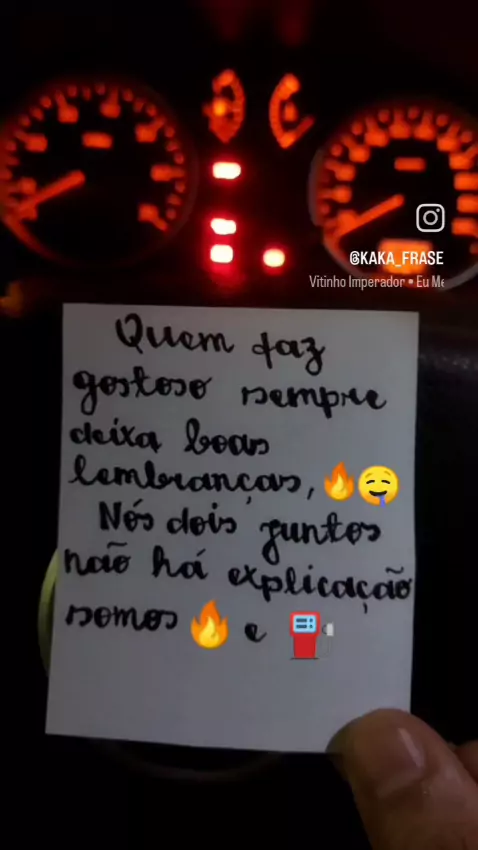 @KAKA_FRASE
Vitinho Imperador • Eu Me
Quem faz
gostoso sempre
deixa boas
lembranças, 🔥🤤
Nós dois juntos
não há explicação
somos 🔥 e ⛽